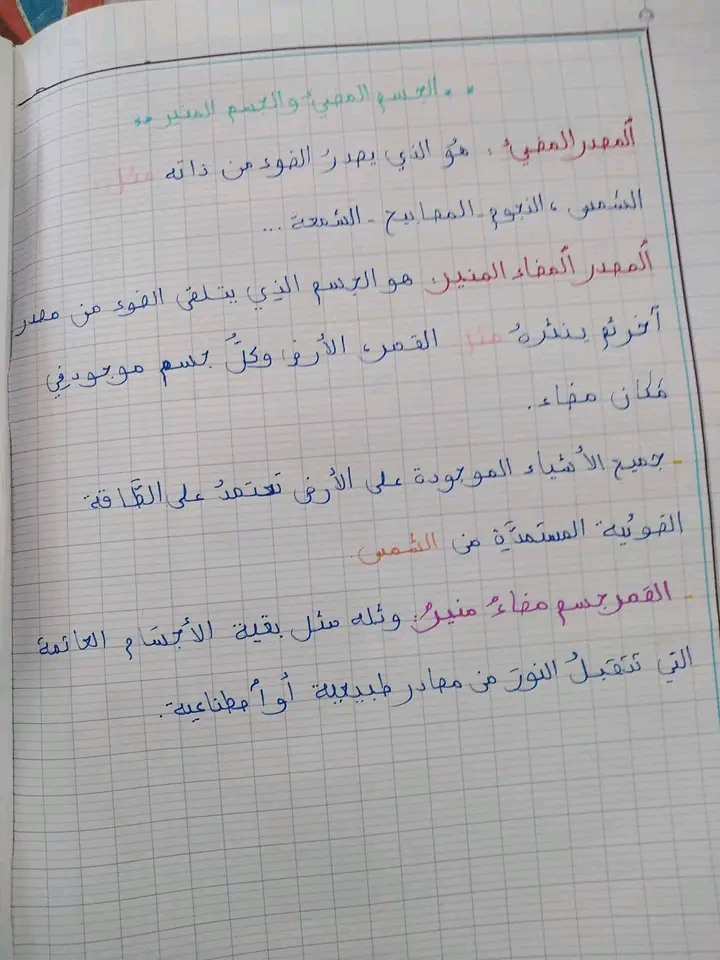 .. الجسم المضيئ والجسم المنير ..
المصدر المضيئُ: هوَ الذي يصدرُ الضوء من ذاته مثل:
الشمس، النجوم - المصابيح - الشمعة ...
المصدر المضاء المنير: هو الجسم الذِي يتلقى الضوء من مصدر
آخر ثم ينثرهُ مثل القمر، الأرض وكلُّ جسم موجود في
مَكان مضاء.
- جميع الأشياء الموجودة على الأرض تعتمدُ على الطَّاقة
الضوئية المستمدَّة من الشمس.
- القمر جسم مضاءُ منيرُ، وثله مثل بقية الأجسَام العاتمة
التي تتقبلُ النورَ من مصادر طبيعية أو أصطناعية.